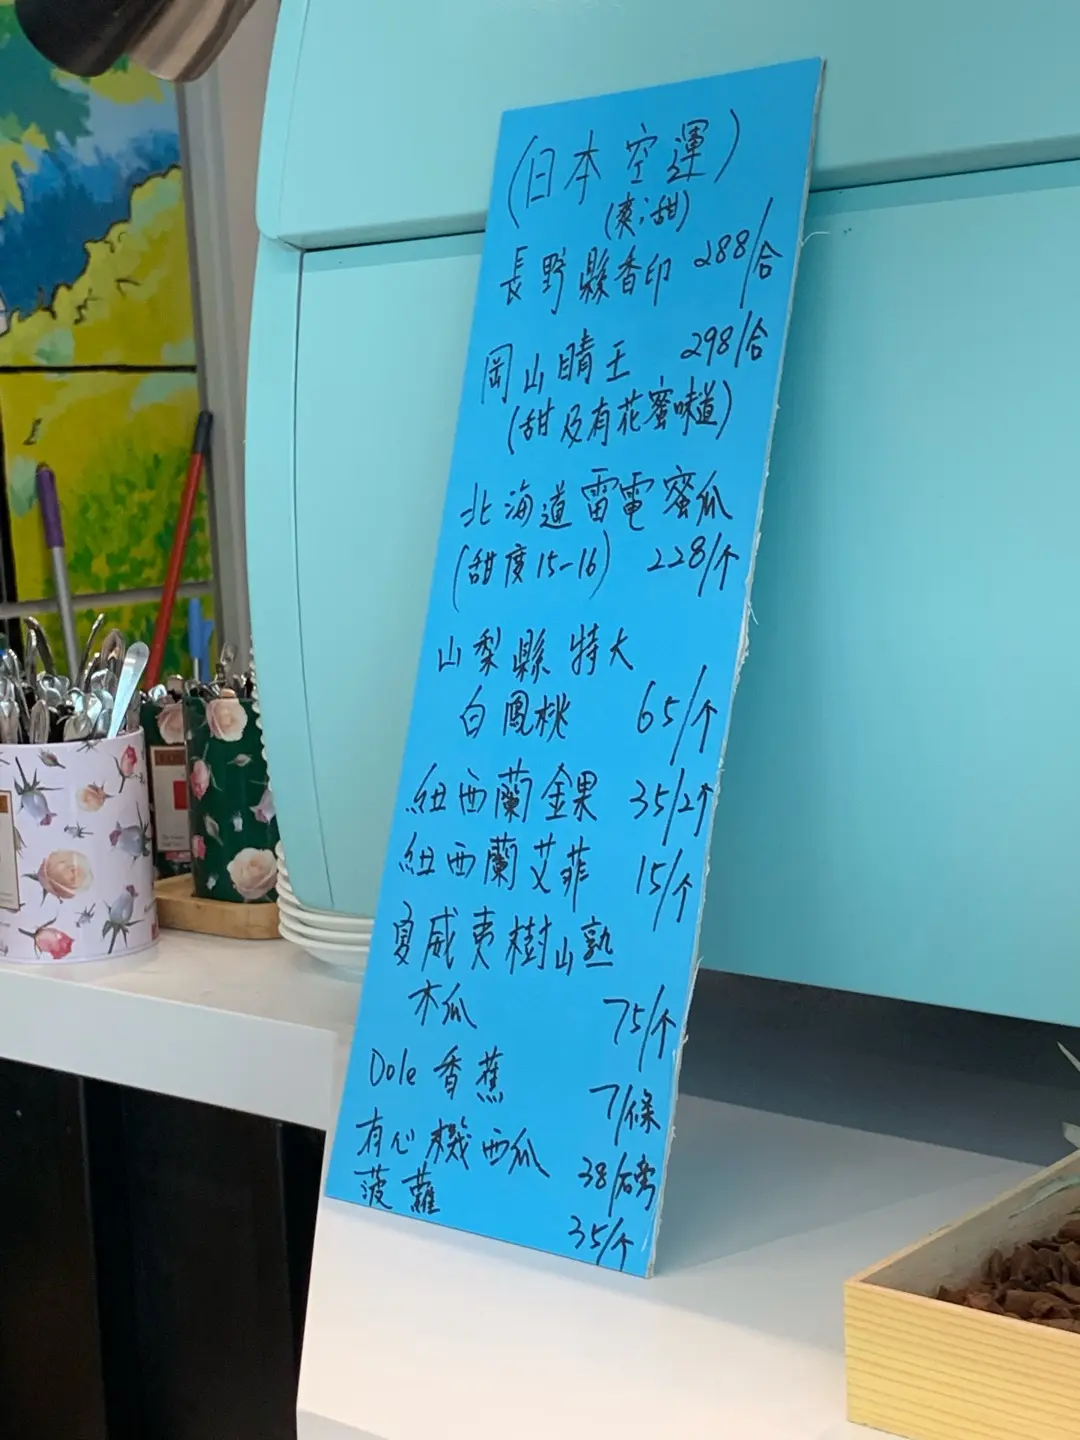 (日本空運)
(爽,甜)
長野縣香印 288/合
岡山晴王 298/合
(甜及有花蜜味道)
北海道雷電蜜瓜
(甜度15-16) 228/个
山梨縣特大
白鳳桃 65/个
紐西蘭金果 35/2个
紐西蘭艾菲 15/个
夏威夷樹山熟
木瓜 75/个
Dole 香蕉 7/條
有心機西瓜 38/磅
菠蘿 35/个